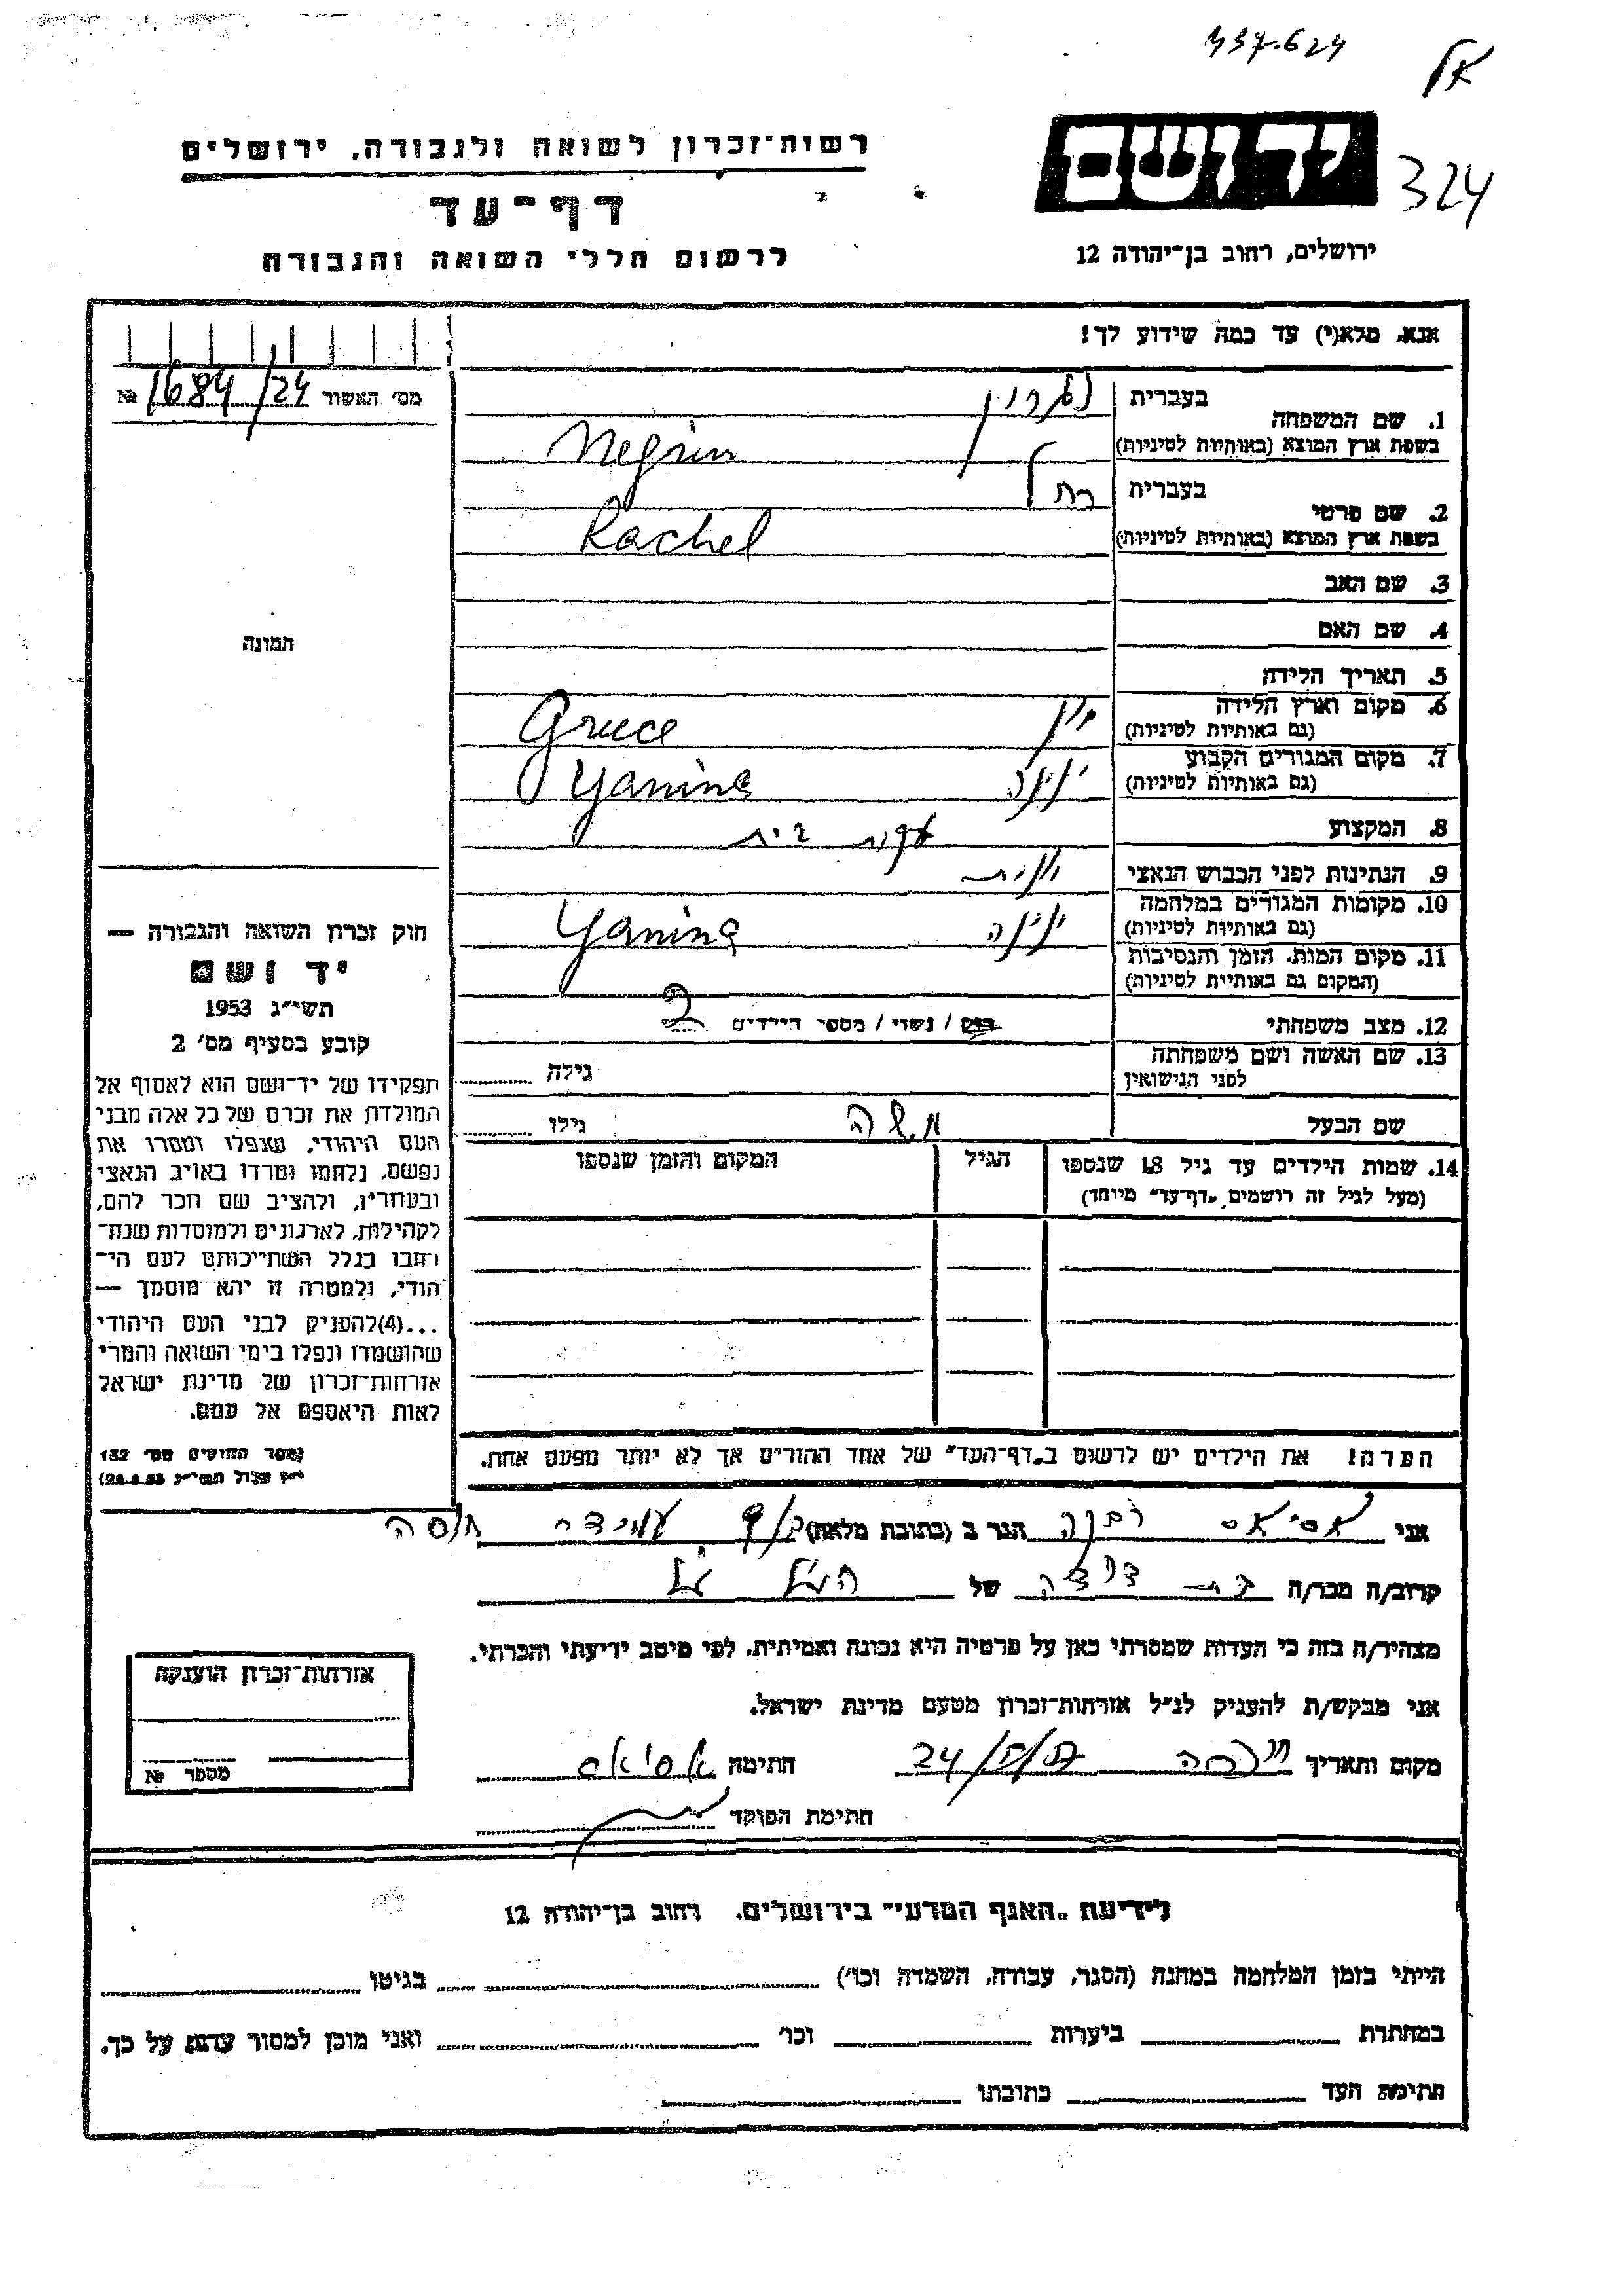 437.624
אל
רשות־זכרון לשואה ולגבורה, ירושלים
יד ושם
324
דף־עד
לרשום חללי השואה והגבורה
ירושלים, רחוב בן־יהודה 12
אנא, מלא(י) עד כמה שידוע לך!
מס׳ האשור 1684/24 №
1. שם המשפחה
בעברית נגרין
בשפת ארץ המוצא (באותיות לטיניות) Negrin
2. שם פרטי
בעברית רחל
בשפת ארץ המוצא (באותיות לטיניות) Rachel
3. שם האב
4. שם האם
תמונה
5. תאריך הלידה
6. מקום וארץ הלידה
(גם באותיות לטיניות) יון Greece
7. מקום המגורים הקבוע
(גם באותיות לטיניות) ינינה Yanina
8. המקצוע עקרת בית
9. הנתינות לפני הכבוש הנאצי יונית
10. מקומות המגורים במלחמה
(גם באותיות לטיניות) ינינה Yanina
11. מקום המות, הזמן והנסיבות
(המקום גם באותיות לטיניות)
12. מצב משפחתי רווק / נשוי / מספר הילדים 2
13. שם האשה ושם משפחתה
לפני הנישואין גילה
שם הבעל משה גילו
14. שמות הילדים עד גיל 18 שנספו
(מעל לגיל זה רושמים „דף־עד״ מיוחד)
הגיל
המקום והזמן שנספו
חוק זכרון השואה והגבורה —
יד ושם
תשי״ג 1953
קובע בסעיף מס׳ 2
תפקידו של יד־ושם הוא לאסוף אל
המולדת את זכרם של כל אלה מבני
העם היהודי, שנפלו ומסרו את
נפשם, נלחמו ומרדו באויב הנאצי
ובעוזריו, ולהציב שם וזכר להם,
לקהילות, לארגונים ולמוסדות שנח־
רבו בגלל השתייכותם לעם הי־
הודי, ולמטרה זו יהא מוסמך —
...(4)להעניק לבני העם היהודי
שהושמדו ונפלו בימי השואה והמרי
אזרחות־זכרון של מדינת ישראל
לאות היאספם אל עמם.
(ספר החוקים מס׳ 132
י״ז אלול תשי״ג 28.8.53)
הערה! את הילדים יש לרשום ב„דף־העד״ של אחד ההורים אך לא יותר מפעם אחת.
אני אסיאס הגר ב (כתובת מלאה) עמידר
קרוב/ה מכר/ה בת דודה של הנ״ל
מצהיר/ה בזה כי העדות שמסרתי כאן על פרטיה היא נכונה ואמיתית, לפי מיטב ידיעתי והכרתי.
אני מבקש/ת להעניק לנ״ל אזרחות־זכרון מטעם מדינת ישראל.
מקום ותאריך 24 חתימה אסיאס
חתימת הפוקד
אזרחות־זכרון הוענקה
מספר №
לידיעת „האגף המדעי״ בירושלים, רחוב בן־יהודה 12
הייתי בזמן המלחמה במחנה (הסגר, עבודה, השמדה וכו׳) בגיטו
במחתרת ביערות וכו׳ ואני מוכן למסור עדות על כך.
חתימת העד כתובתו